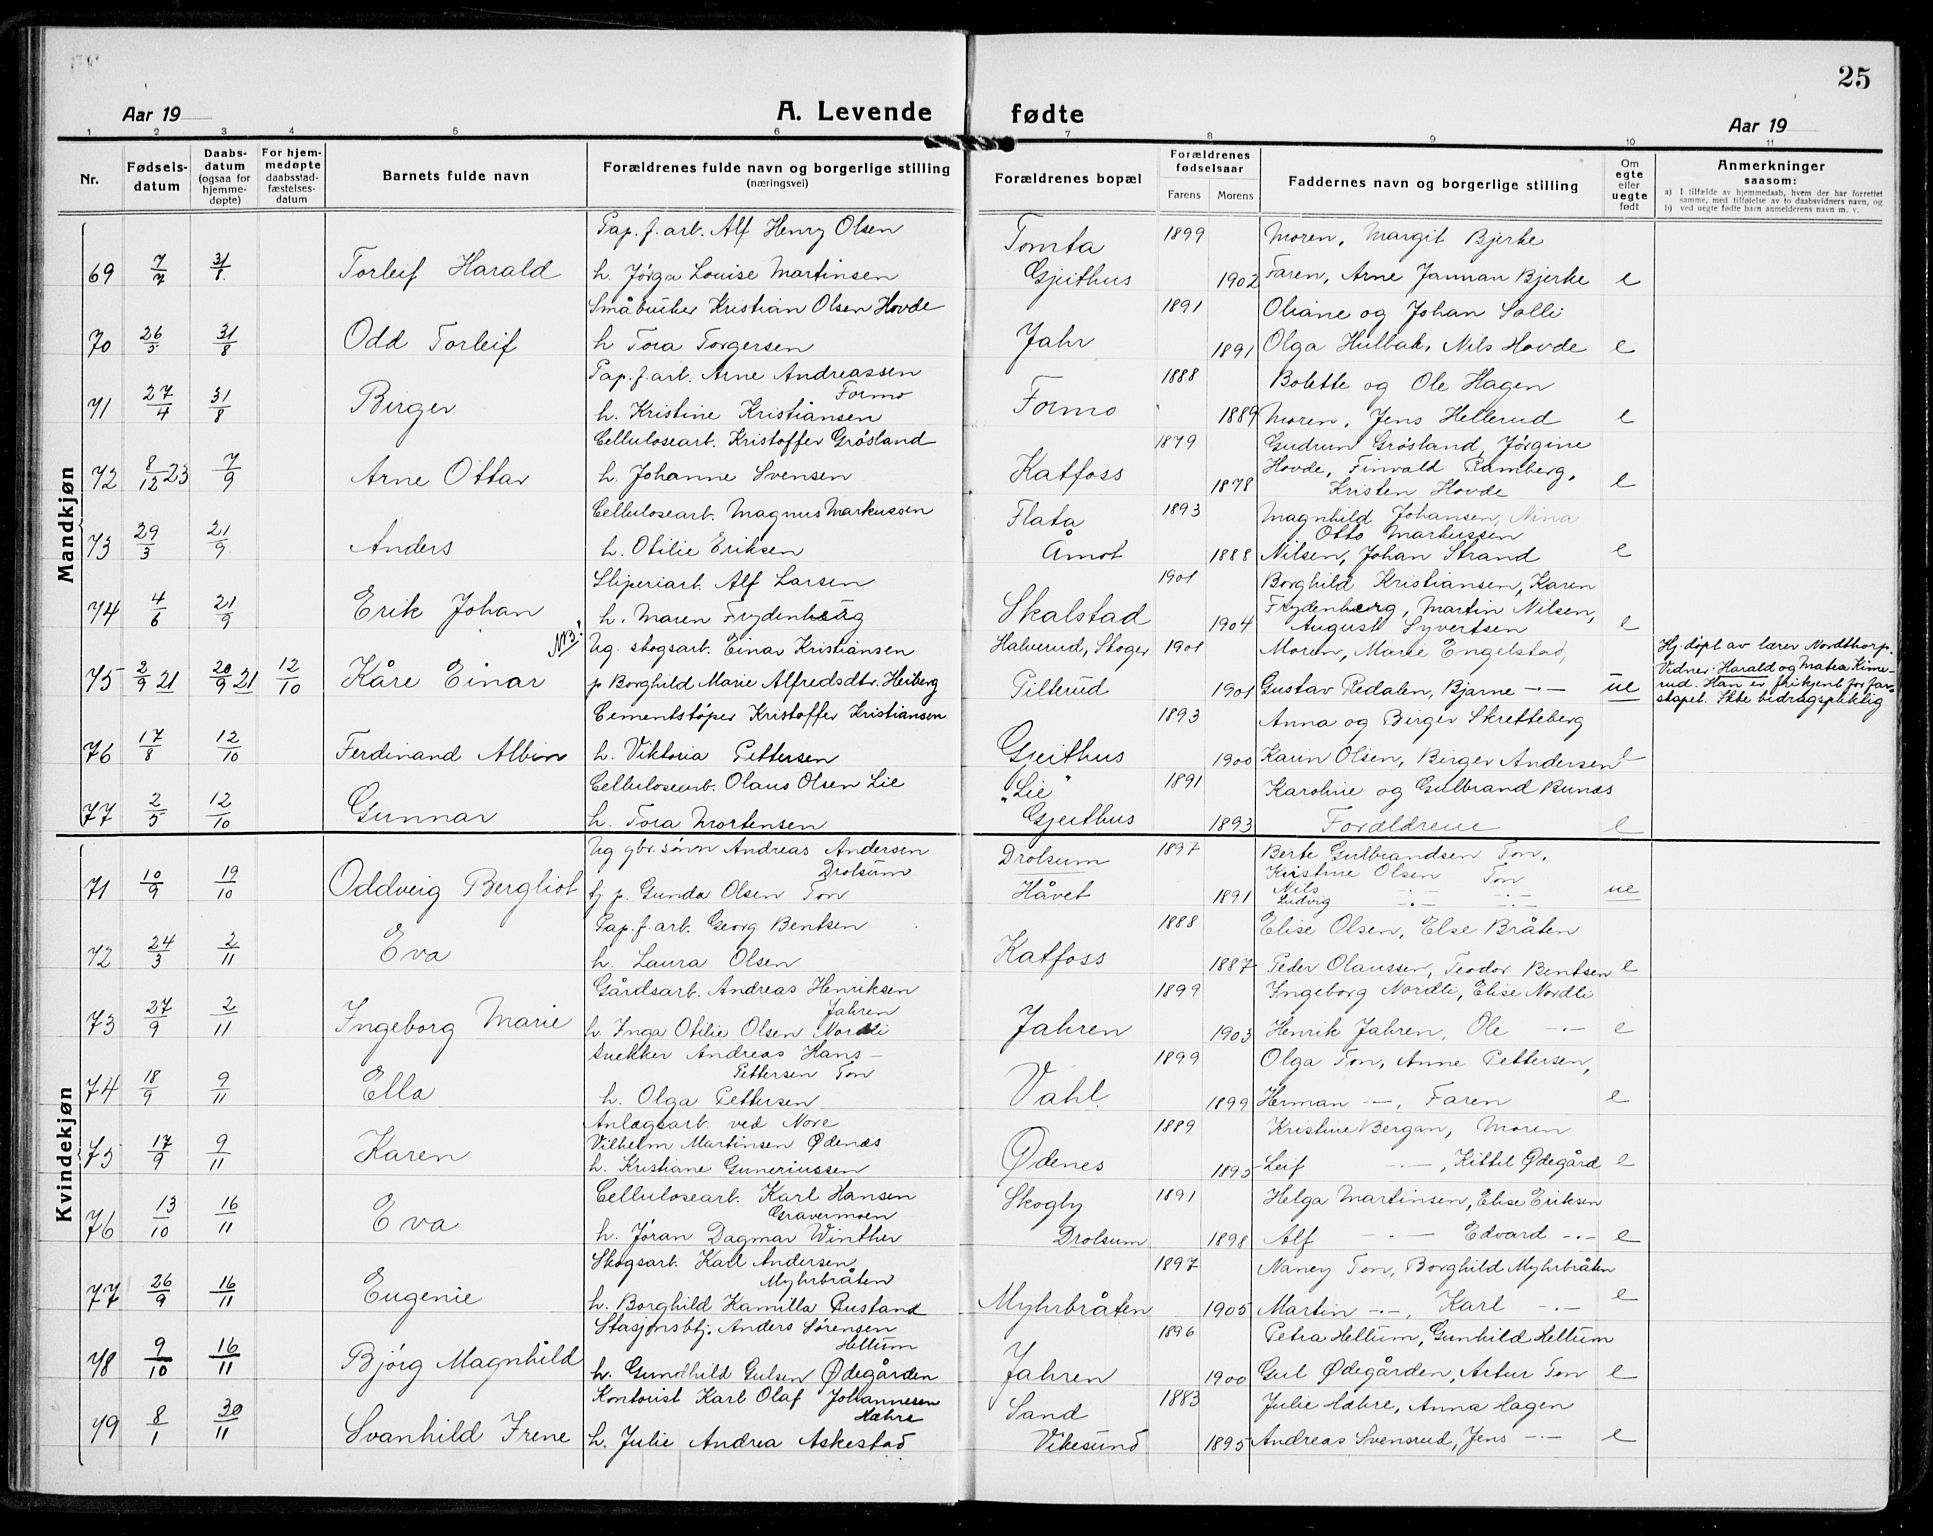 25
Aar 19 A. Levende fødte Aar 19
1 2 3 4 5 6 7 8 9 10 11
Nr. Fødsels-datum Daabs-datum (ogsaa for hjemme-døpte) For hjem-medøpte daabsstad-fæstelses-datum Barnets fulde navn Forældrenes fulde navn og borgerlige stilling (næringsvei) Forældrenes bopæl Forældrenes fødselsaar Farens Morens Faddernes navn og borgerlige stilling Om egte eller uegte født Anmerkninger saasom:
a) I tilfælde av hjemmedaab, hvem der har forrettet samme, med tilføielse av to daabsvidners navn, og
b) ved uegte fødte barn anmelderens navn m. v.
Mandkjøn
Pap. f. arb. Alf Henry Olsen Tomta 1899 Moren, Margit Bjerke
69 7/7 31/8 Torleif Harald h. Jørga Louise Martinsen Gjeithus 1902 Faren, Arne Jannan Bjerke e
Småbruker Kristian Olsen Hovde 1891 Oliane og Johan Solli
70 26/5 31/8 Odd Torleif h Tora Torgersen Jahr 1891 Olga Hulbak, Nils Hovde e
Pap. f. arb. Arne Andreassen Formo 1888 Bolette og Ole Hagen
71 27/4 31/8 Birger h. Kristine Kristiansen Formo 1889 Moren, Jens Hellerud e
Cellulosearb. Kristoffer Grøsland 1879 Gudrun Grøsland, Jørgine
72 8/12 23 7/9 Arne Ottar h. Johanne Svensen Katfoss 1878 Hovde, Finvald Ramberg,
Kristen Hovde e
Cellulosearb. Magnus Markussen Flata 1893 Magnhild Johansen, Nina
Otto Markussen
73 29/3 21/9 Anders h. Otilie Eriksen Åmot 1888 Nilsen, Johan Strand e
Sliperiarb. Alf Larsen 1901 Borghild Kristiansen, Karen
74 4/6 21/9 Erik Johan h. Maren Frydenberg Skalstad 1904 Frydenberg, Martin Nilsen,
August Syvertsen e
NB! Ug. skogsarb. Einar Kristiansen Halverud, Skoger 1901 Moren, Marie Engelstad,
75 2/9 21 20/9 21 12/10 Kåre Einar p Borghild Marie Alfredsdtr. Heiberg Pilterud 1901 Gustav Redalen, Bjarne -"- ue
Hj. døpt av lærer Nordthorp.
Vidner: Harald og Matea Kime-
rud. Han er frikjent for far-
skapet. Ikke bidragspliktig
Cementstøper Kristoffer Kristiansen 1893 Anna og Birger Skretteberg
76 17/8 12/10 Ferdinand Albin h. Viktoria Pettersen Gjeithus 1900 Karin Olsen, Birger Andersen e
Cellulosearb. Olaus Olsen Lie "Lie" 1891 Karoline og Gulbrand Bunæs
77 2/5 12/10 Gunnar h. Tora Mortensen Gjeithus 1893 Forældrene e
Kvindekjøn
Ug gbr. sønn Andreas Andersen Drolsum Drolsum 1897 Berte Gulbrandsen Ton,
Kristine Olsen Ton
71 10/9 19/10 Oddveig Bergliot tj p. Gunda Olsen Ton Håvet 1891 Nils -"- -"-
Ludvig -"- -"- ue
Pap. f. arb. Georg Bentsen 1888 Elise Olsen, Else Bråten
72 24/3 2/11 Eva h. Laura Olsen Katfoss 1887 Peder Olaussen, Teodor Bentsen e
Gårdsarb. Andreas Henriksen Jahren 1899 Ingeborg Nordli, Elise Nordli
73 27/9 2/11 Ingeborg Marie h. Inga Otilie Olsen Nordli Jahren 1903 Henrik Jahren, Ole -"- e
Snekker Andreas Hans-
Pettersen Ton 1899 Olga Ton, Anne Pettersen,
74 18/9 9/11 Ella h. Olga Pettersen Vahl. 1899 Herman -"-, Faren e
Anlægsarb. ved Nore
Vilhelm Martinsen Ødenæs 1889 Kristine Bergan, Moren
75 17/9 9/11 Karen h. Kristiane Gunerïussen Ødenes 1895 Leif -"-, Kittil Ødegård e
Cellulosearb. Karl Hansen Gravermoen Skogly 1891 Helga Martinsen, Elise Eriksen
76 13/10 16/11 Eva h. Jøran Dagmar Winther Drolsum 1898 Alf -"- Edvard -"- e
Skogsarb. Karl Andersen Myhrbråten 1897 Nancy Ton, Borghild Myhrbråten
77 26/9 16/11 Eugenie h. Borghild Kamilla Rustand Myhrbråten 1905 Martin -"-, Karl -"- e
Stasjonsbtj. Anders Sørensen Hellum 1896 Petra Hellum, Gunhild Hellum
78 9/10 16/11 Bjørg Magnhild h. Gundhild Gulsen Ødegården Jahren 1900 Gul Ødegården, Artur Ton e
Kontorist Karl Olaf Johannesen Hæhre Sand 1883 Julie Hæhre, Anna Hagen
79 8/1 30/11 Svanhild Irene h. Julie Andrea Askestad Vikesund 1895 Andreas Svensrud, Jens -"- e